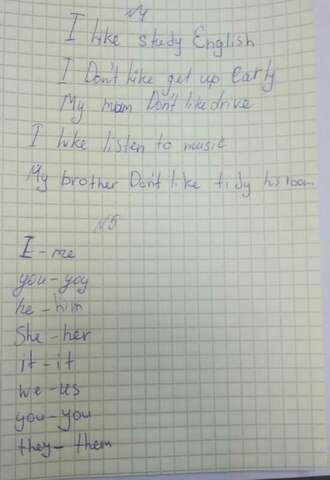 №4
I like study English
I Don't Like get up Early
My mom Don't like drive
I like listen to music
My brother Don't like tidy his room
№5
I - me
you - yoy
he - him
She - her
it - it
we - us
you - you
they - them